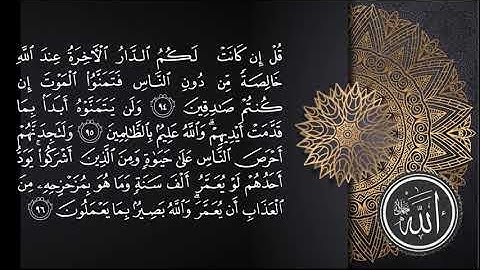 قُلْ إِن كَانَتْ لَكُمُ الدَّارُ الْآخِرَةُ عِندَ اللَّهِ
خَالِصَةً مِّن دُونِ النَّاسِ فَتَمَنَّوُا الْمَوْتَ إِن
كُنتُمْ صَادِقِينَ ٩٤ وَلَن يَتَمَنَّوْهُ أَبَدًا بِمَا
قَدَّمَتْ أَيْدِيهِمْ وَاللَّهُ عَلِيمٌ بِالظَّالِمِينَ ٩٥ وَلَتَجِدَنَّهُمْ
أَحْرَصَ النَّاسِ عَلَىٰ حَيَوٰةٍ وَمِنَ الَّذِينَ أَشْرَكُوا يَوَدُّ
أَحَدُهُمْ لَوْ يُعَمَّرُ أَلْفَ سَنَةٍ وَمَا هُوَ بِمُزَحْزِحِهِ مِنَ
الْعَذَابِ أَن يُعَمَّرَ وَاللَّهُ بَصِيرٌ بِمَا يَعْمَلُونَ ٩٦
الله